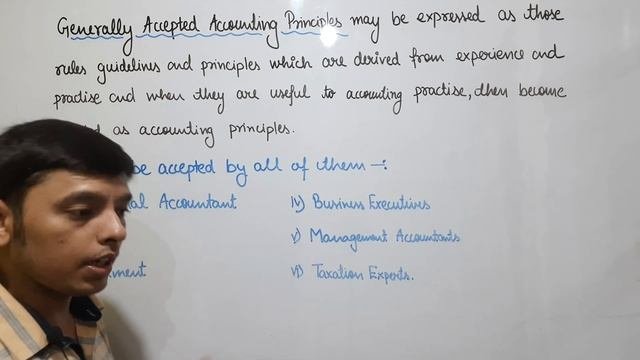 Generally Accepted Accounting Principles may be expressed as those
rules guidelines and principles which are derived from experience and
practise and when they are useful to accounting practise, then become
as accounting principles.
be accepted by all of them -:
Accountant
iv) Business Executives
v) Management Accountants
vi) Taxation Experts.